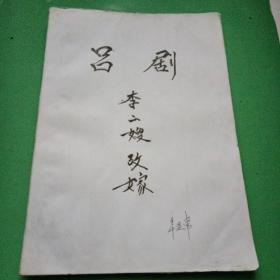 吕剧
李二嫂改嫁